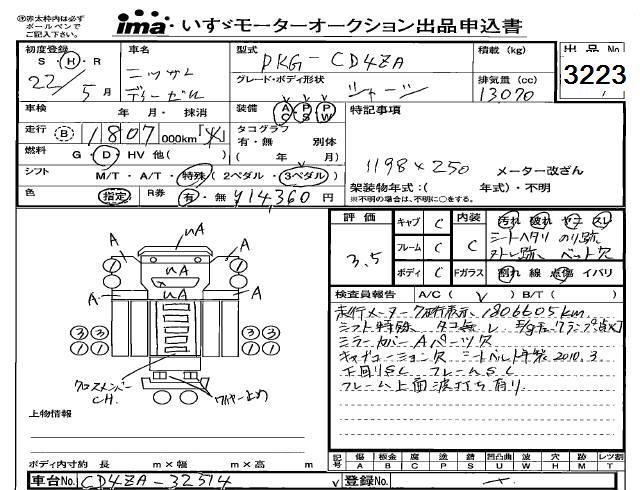 ㊟赤太枠内は必ず
ボールペンで
ご記入下さい。
ima いすゞモーターオークション出品申込書
初度登録 車名 型式 積載 (kg) 出品No
S・H・R ニッサン PKG-CD4ZA
22/5月 ディーゼル グレード・ボディ形状 排気量 (cc) 3223
シャーシ 13070
車検 年 月・抹消 装備 AC PS PW 特記事項
走行 B 1807 000km
タコグラフ
有・無 別体
燃料 G・D・HV 他( ) ( 年 月) 1198×250 メーター改ざん
シフト M/T・A/T・特殊 (2ペダル・3ペダル) 架装物年式:( 年式)・不明
※不明の場合は、不明に○をする。
色 指定 R券 有・無 ¥14,360円
評価 キャブ C 内装 汚れ 破れ ヤニ スレ
3.5 フレーム C C シートヘタリ のり跡
ボディ C Fガラス ベット欠
割れ 線 点傷 イバリ
検査員報告 A/C( ) B/T( )
走行メーター 表示 1806605km
ミラーカバーAパーツ欠
シートベルト年式 2010.3
下回りSL フレームSL
フレーム上面波打ち有り
UA
A A
UA
A UA A
① ①
① ①
③③ ③③
①① ①①
クロスメンバー
CH.
ワイヤー止め
上物情報
ボディ内寸約 長 m×幅 m×高 m
記号 傷 A 板金 B 腐 C 塗 P 錆 S 凹凸曲 U 波 W 穴 H 跡 M レツ割 T
車台No. CD4ZA-32574 登録No.